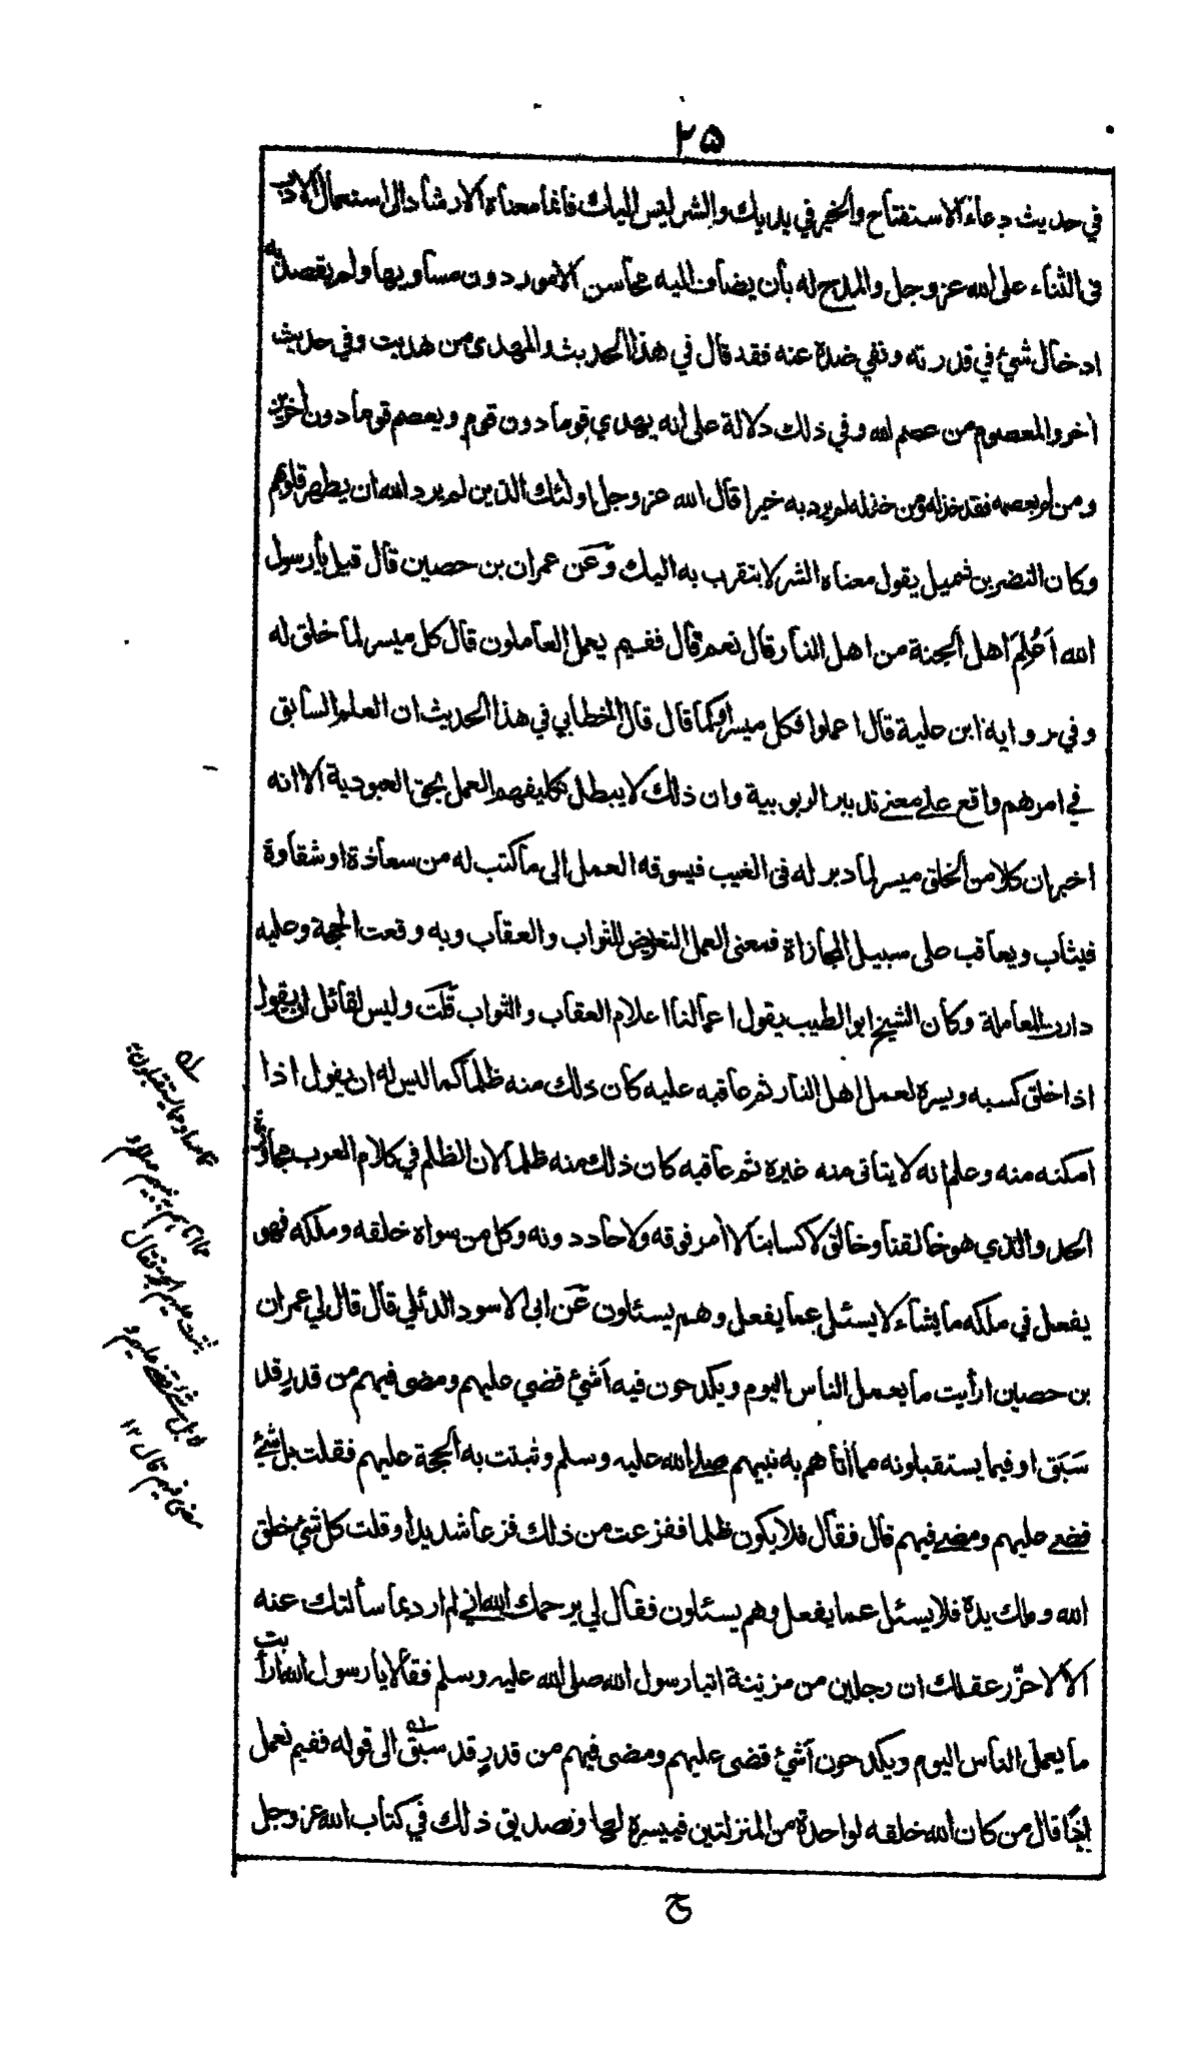 ٢٥
في حديث دعاء الاستفتاح والخير في يديك والشر ليس اليك فانما معناه الارشاد الى استعمال الادب
في الثناء على الله عز وجل والمدح له بأن يضاف اليه محاسن الامور دون مساويها ولم يقصد به
ادخال شئ في قدرته ونفي ضده عنه فقد قال في هذا الحديث والمهدى من هديت وفي حديث
اخر والمعصوم من عصم الله وفي ذلك دلالة على انه يهدي قوما دون قوم ويعصم قوما دون اخرين
ومن لم يعصمه فقد خذله ومن خذله لم يرد به خيرا قال الله عز وجل اولئك الذين لم يرد الله ان يطهر قلوبهم
وكان النضر بن شميل يقول معناه الشر لا يتقرب به اليك وعن عمران بن حصين قال قيل يا رسول
الله اعُلِمَ اهل الجنة من اهل النار قال نعم قال ففيم يعمل العاملون قال كل ميسر لما خلق له
وفي رواية ابن علية قال اعملوا فكل ميسر او كما قال قال الخطابي في هذا الحديث ان العلم السابق
في امرهم واقع على معنى تدبير الربوبية وان ذلك لا يبطل تكليفهم العمل بحق العبودية الا انه
اخبر ان كلا من الخلق ميسر لما دبر له في الغيب فيسوقه العمل الى ما كتب له من سعادة او شقاوة
فيثاب ويعاقب على سبيل المجازاة فمعنى العمل التعريض للثواب والعقاب وبه وقعت الحجة وعليه
دارت المعاملة وكان الشيخ ابو الطيب يقول اعمالنا اعلام العقاب والثواب قلت وليس لقائل ان يقول
اذا خلق كسبه ويسره لعمل اهل النار ثم عاقبه عليه كان ذلك منه ظلما كما ليس له ان يقول اذا
امكنه منه وعلم انه لا يتاتى منه غيره ثم عاقبه كان ذلك منه ظلما لان الظلم في كلام العرب مجاوزة
الحد والذي هو خالقنا وخالق اكسابنا لا أمر فوقه ولا حاد دونه وكل من سواه خلقه وملكه فهو
يفعل في ملكه ما يشاء لا يسئل عما يفعل وهم يسئلون عن ابى الاسود الدئلي قال قال لي عمران
بن حصين ارأيت ما يعمل الناس اليوم ويكدحون فيه أشئ قضي عليهم ومضى فيهم من قدرٍ قد
سَبَق او فيما يستقبلونه مما أتاهم به نبيهم صلى الله عليه وسلم وثبتت به الحجة عليهم فقلت بل شئ
قضى عليهم ومضى فيهم قال فقال فلا يكون ظلما ففزعت من ذلك فزعا شديدا وقلت كل شئ خلق
الله وملك يده فلا يسئل عما يفعل وهم يسئلون فقال لي يرحمك الله اني لم ارد بما سألتك عنه
الا لاحزر عقلك ان رجلين من مزينة اتيا رسول الله صلى الله عليه وسلم فقالا يا رسول الله ارأيت
ما يعمل الناس اليوم ويكدحون أشئ قضى عليهم ومضى فيهم من قدرٍ قد سَبَق الى قوله ففيم نعمل
اذًا قال من كان الله خلقه لواحدة من المنزلتين فييسره لها وتصديق ذلك في كتاب الله عز وجل
او فيما يستقبلون
مما اتاهم به نبيهم
وثبتت عليهم الحجة فقال
لا بل شئ قضى عليهم و
مضى فيهم قال ١٢
ح